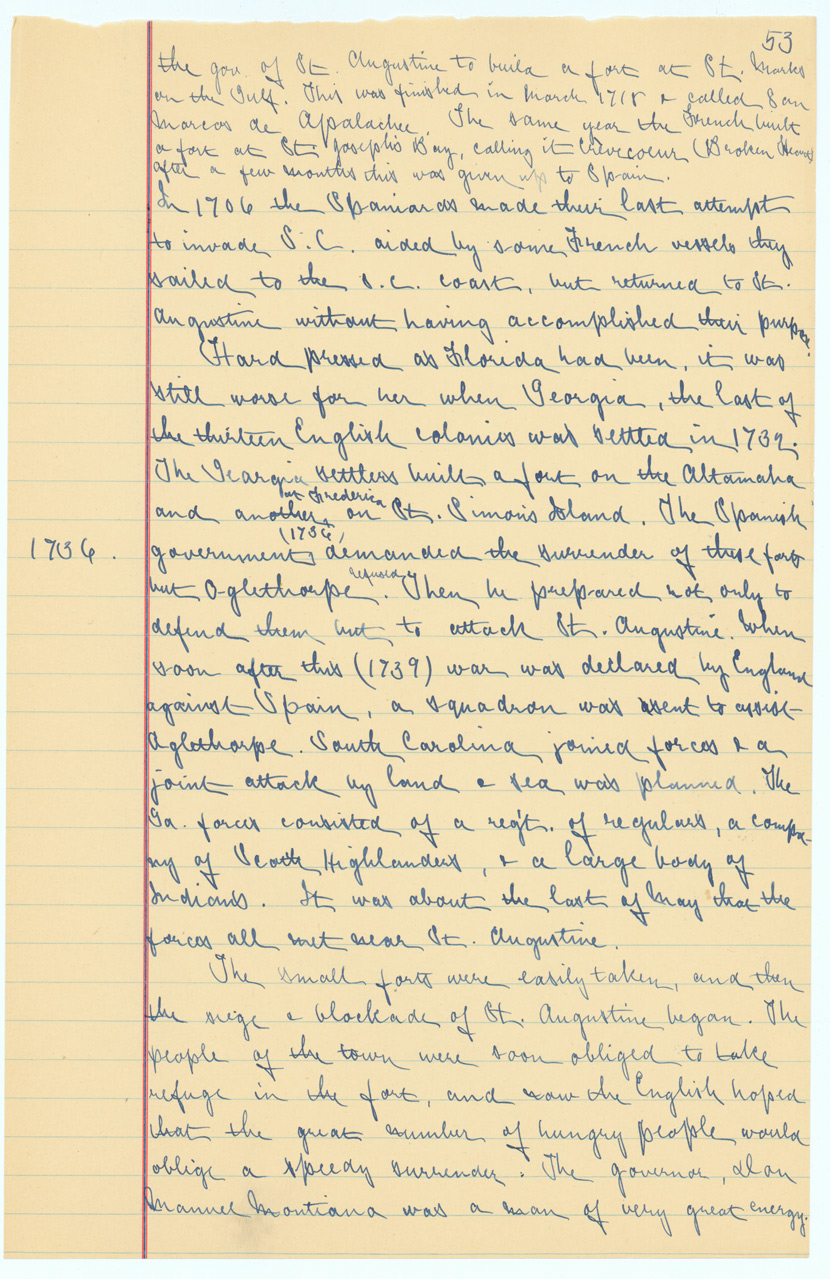 53
the gov. of St. Augustine to build a fort at St. Marks
on the Gulf. This was finished in March 1718 & called San
Marcos de Apalachee. The same year the French built
a fort at St. Joseph's Bay, calling it Crèvecoeur (Broken Heart)
after a few months this was given up to Spain.
In 1706 the Spaniards made their last attempt
to invade S.C. aided by some French vessels they
sailed to the S.C. coast, but returned to St.
Augustine without having accomplished their purpose.
Hard pressed as Florida had been, it was
still worse for her when Georgia, the last of
the thirteen English colonies was settled in 1732.
The Georgia settlers built a fort on the Altamaha
at Frederica
and another on St. Simon's Island. The Spanish
(1736)
1736. government demanded the surrender of these forts
refused
but Oglethorpe. Then he prepared not only to
defend them but to attack St. Augustine. When
soon after this (1739) war was declared by England
against Spain, a squadron was sent to assist
Oglethorpe. South Carolina joined forces & a
joint attack by land & sea was planned. The
Ga. forces consisted of a reg't. of regulars, a compa-
ny of Scotch Highlanders, & a large body of
Indians. It was about the last of May that the
forces all met near St. Augustine.
The small forts were easily taken, and then
the siege & blockade of St. Augustine began. The
people of the town were soon obliged to take
refuge in the fort, and now the English hoped
that the great number of hungry people would
oblige a speedy surrender. The governor, Don
Manuel Montiana was a man of very great energy.